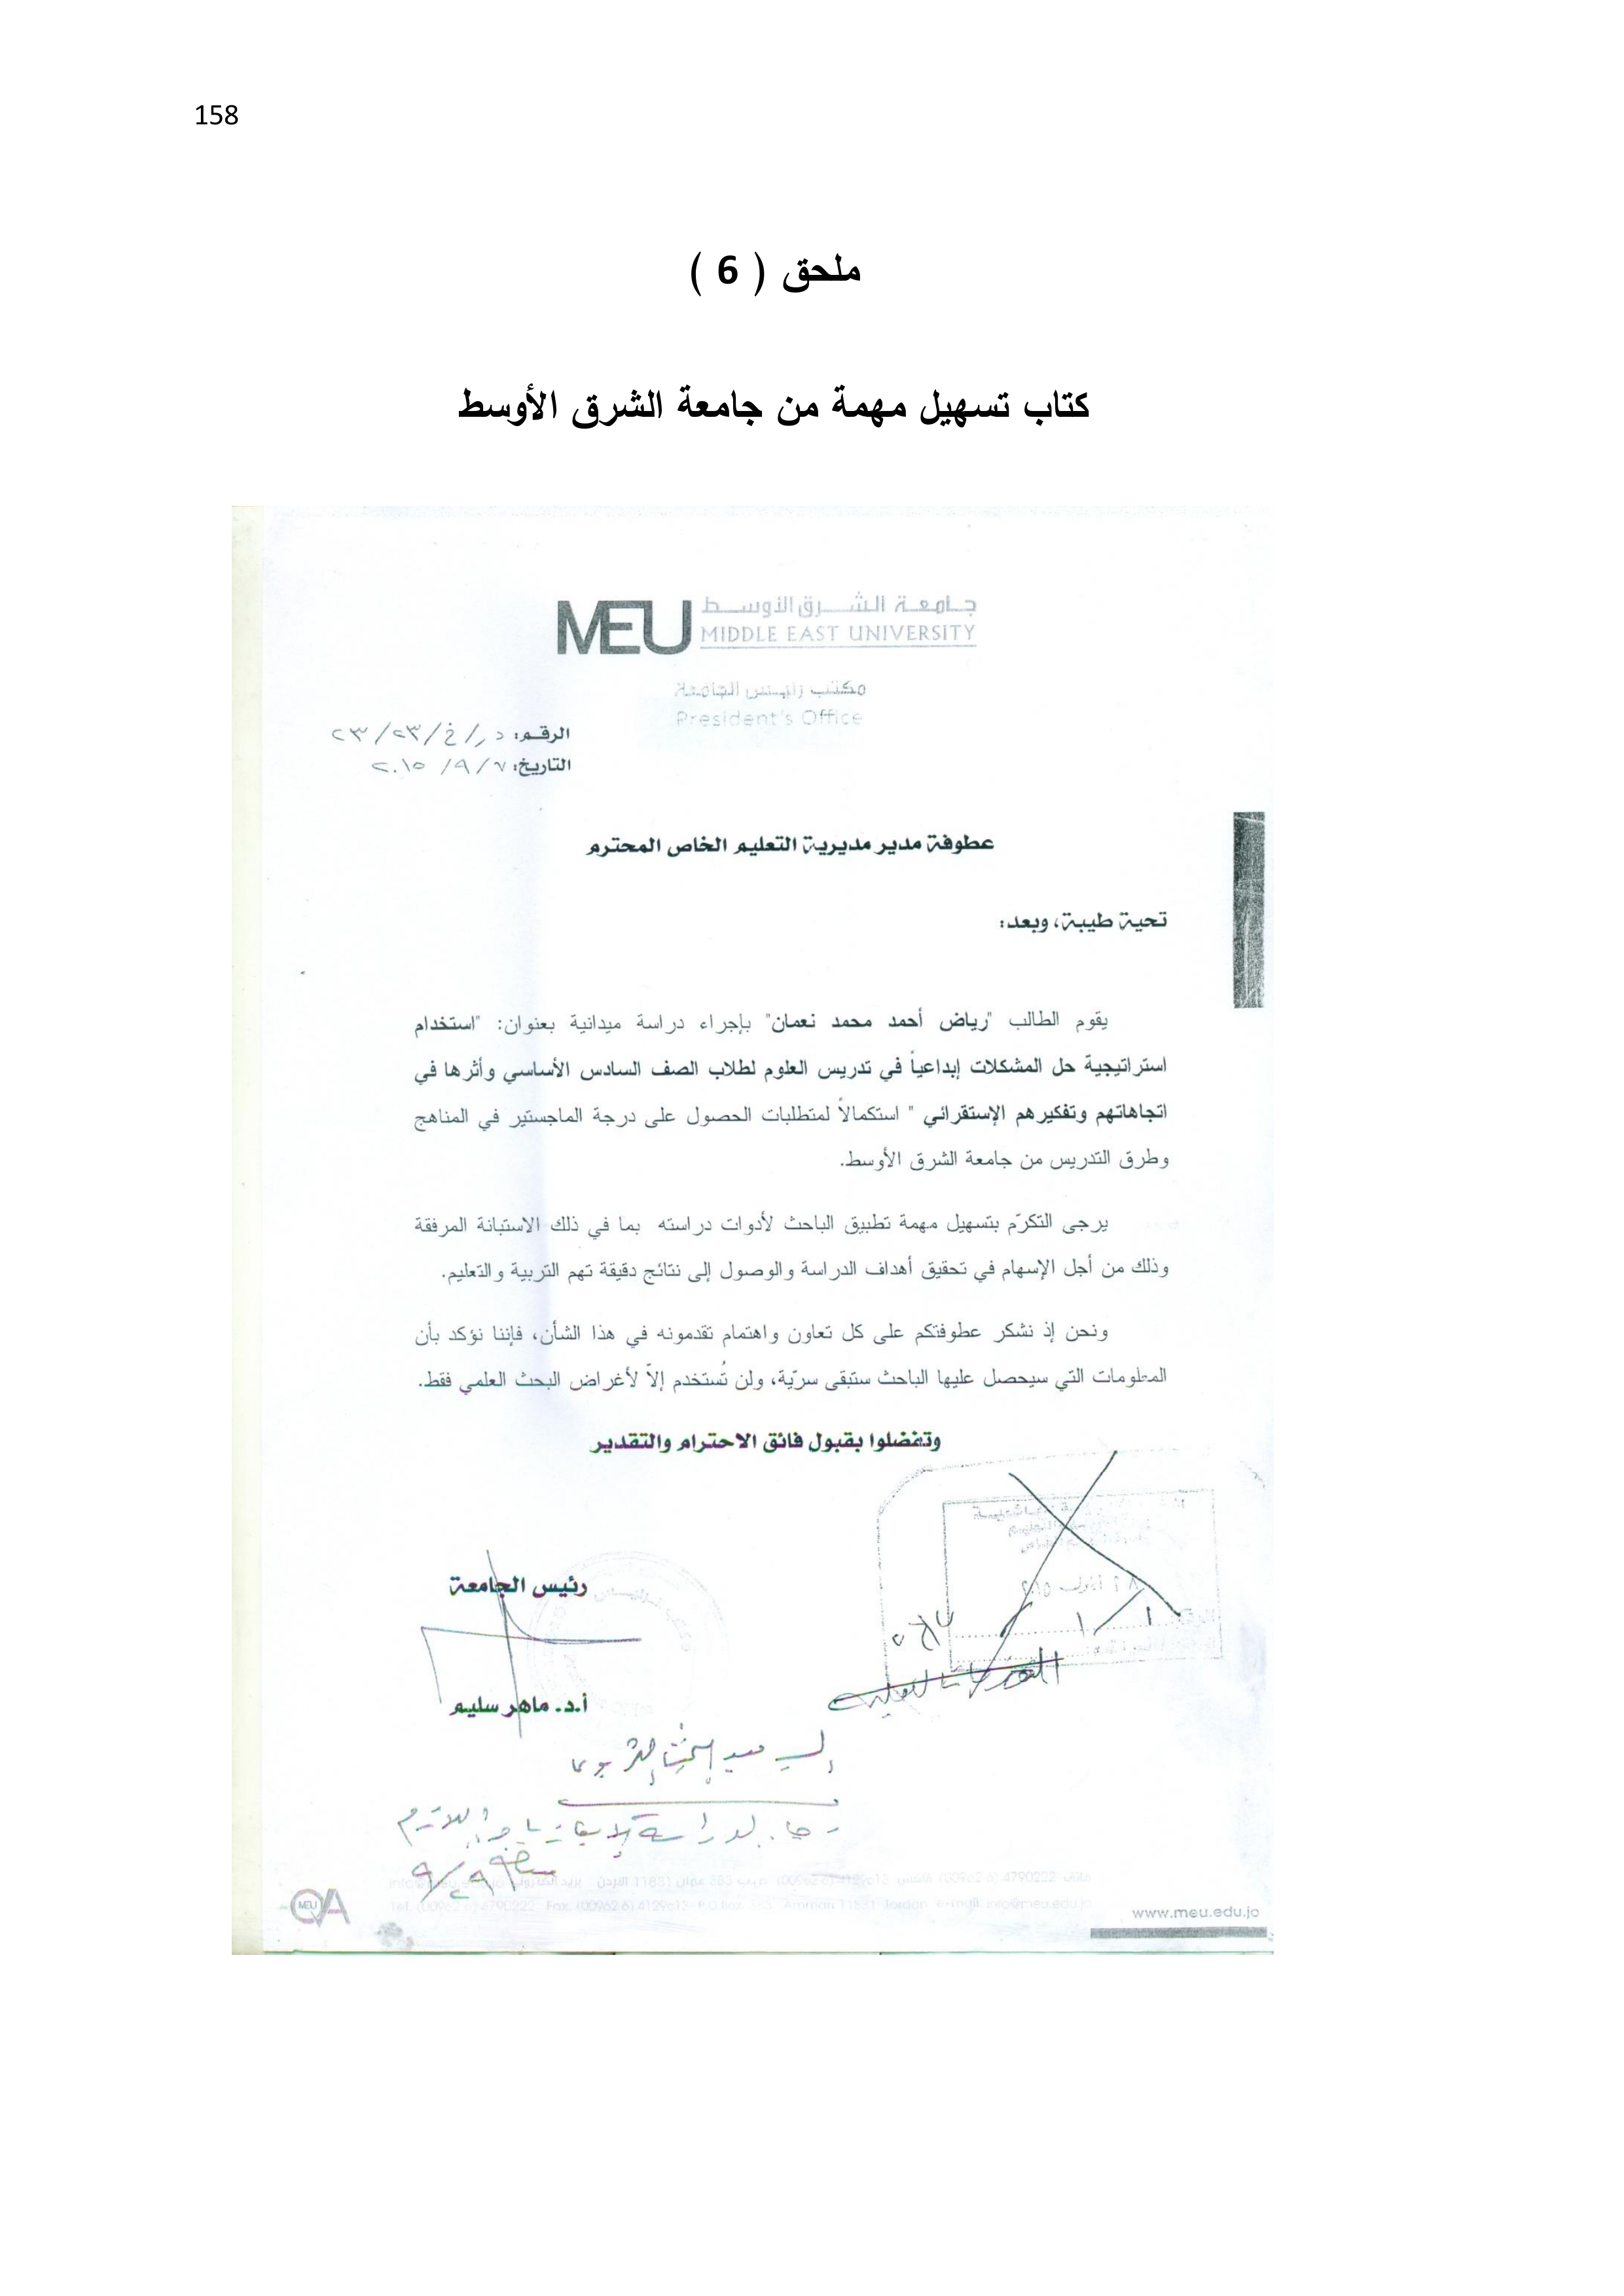 158
ملحق ( 6 )
كتاب تسهيل مهمة من جامعة الشرق الأوسط
MEU جامعة الشرق الأوسط
MIDDLE EAST UNIVERSITY
مكتب رئيس الجامعة
President's Office
الرقم: در/خ/٢٣/٢٣
التاريخ: ٧/٩/٢٠١٥
عطوفة مدير مديرية التعليم الخاص المحترم
تحية طيبة، وبعد:
يقوم الطالب "رياض أحمد محمد نعمان" بإجراء دراسة ميدانية بعنوان: "استخدام
استراتيجية حل المشكلات إبداعياً في تدريس العلوم لطلاب الصف السادس الأساسي وأثرها في
اتجاهاتهم وتفكيرهم الإستقرائي " استكمالاً لمتطلبات الحصول على درجة الماجستير في المناهج
وطرق التدريس من جامعة الشرق الأوسط.
يرجى التكرّم بتسهيل مهمة تطبيق الباحث لأدوات دراسته بما في ذلك الاستبانة المرفقة
وذلك من أجل الإسهام في تحقيق أهداف الدراسة والوصول إلى نتائج دقيقة تهم التربية والتعليم.
ونحن إذ نشكر عطوفتكم على كل تعاون واهتمام تقدمونه في هذا الشأن، فإننا نؤكد بأن
المعلومات التي سيحصل عليها الباحث ستبقى سرّية، ولن تُستخدم إلاّ لأغراض البحث العلمي فقط.
وتفضلوا بقبول فائق الاحترام والتقدير
رئيس الجامعة
أ.د. ماهر سليم
٢٩/٩
Tel. (00962 6) 4790222 Fax. (00962 6) 4129613 P.O.Box. 383 Amman 11831 Jordan e-mail: info@meu.edu.jo
MEU
www.meu.edu.jo